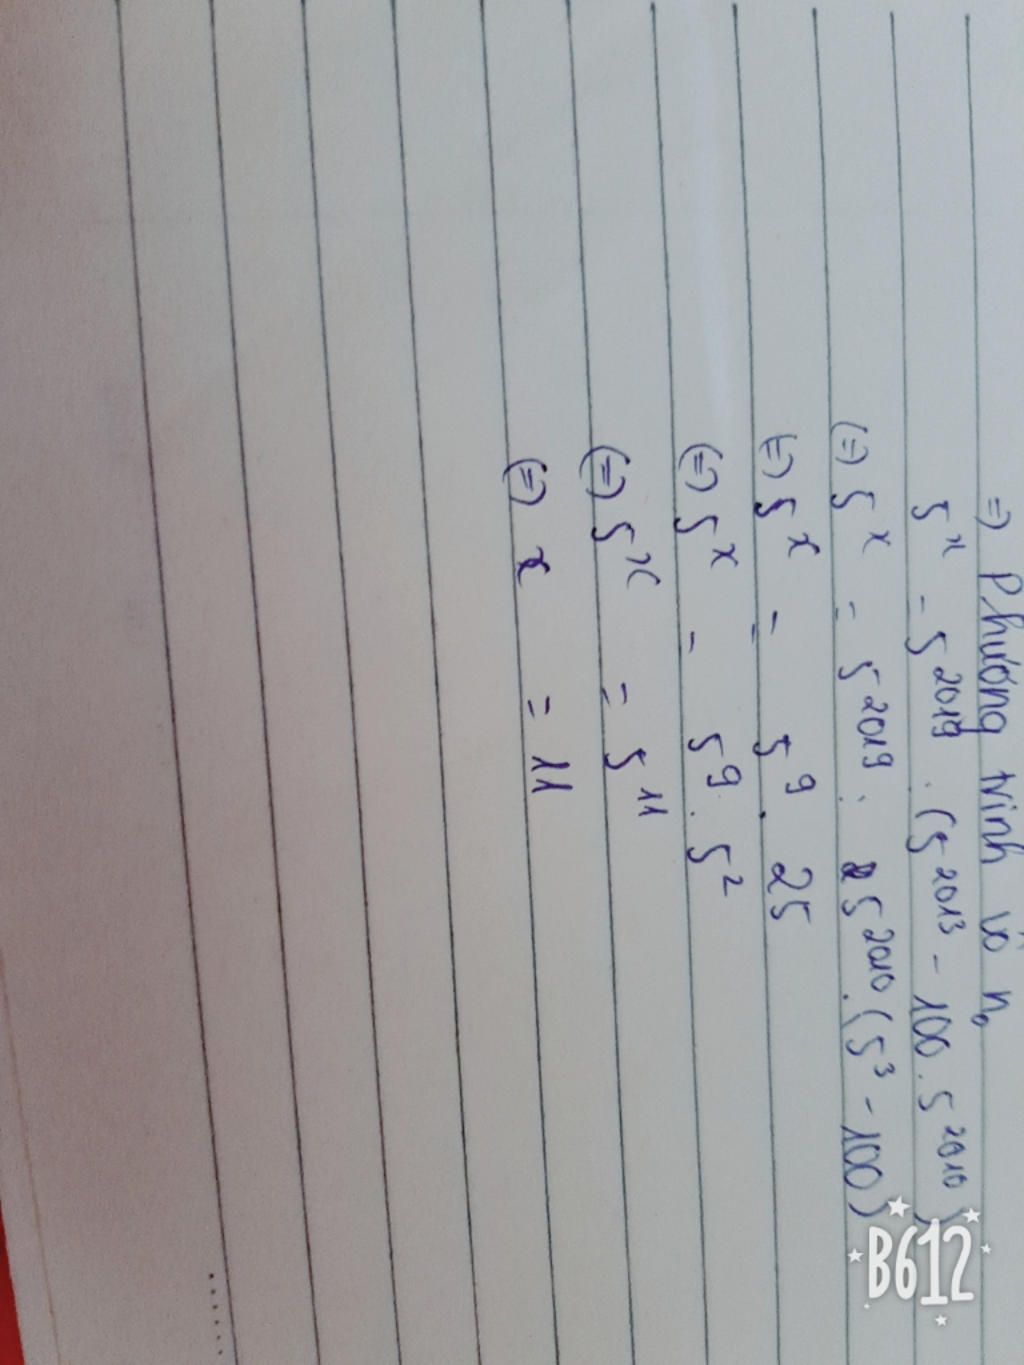 =) Phương trình vô no
5^x = 5^2019 : (5^2013 - 100 . 5^2010)
(=) 5^x = 5^2019 : 5^2010 . (5^3 - 100)
(=) 5^x = 5^9 . 25
(=) 5^x = 5^9 . 5^2
(=) 5^x = 5^11
(=) x = 11
B612